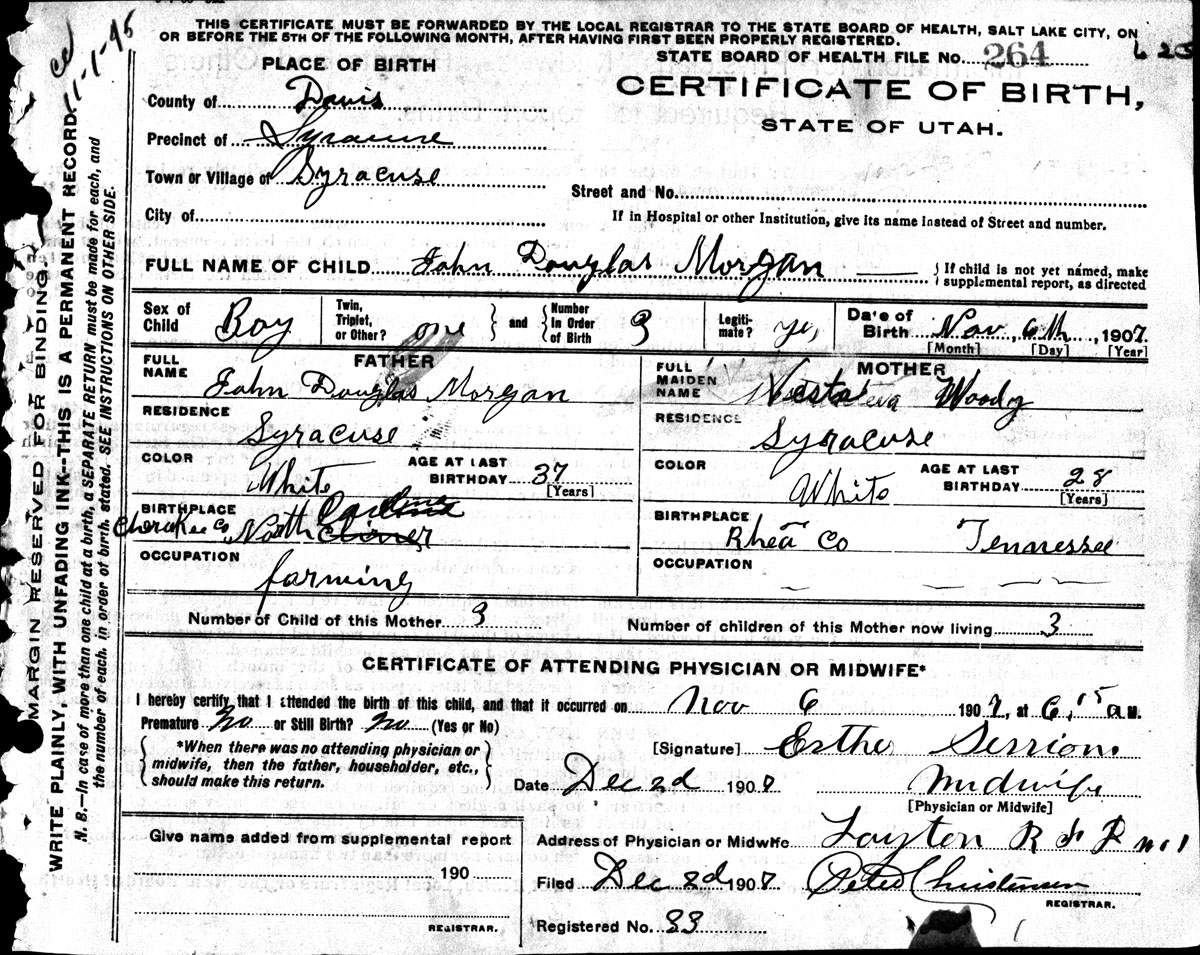 THIS CERTIFICATE MUST BE FORWARDED BY THE LOCAL REGISTRAR TO THE STATE BOARD OF HEALTH, SALT LAKE CITY, ON
OR BEFORE THE 5TH OF THE FOLLOWING MONTH, AFTER HAVING FIRST BEEN PROPERLY REGISTERED.
STATE BOARD OF HEALTH FILE No. 264
PLACE OF BIRTH
CERTIFICATE OF BIRTH,
STATE OF UTAH.
County of Davis
Precinct of Syracuse
Town or Village of Syracuse
Street and No.
City of
If in Hospital or other Institution, give its name instead of Street and number.
FULL NAME OF CHILD John Douglas Morgan
If child is not yet named, make
supplemental report, as directed
Sex of Child Boy
Twin, Triplet, or Other? one
and Number in Order of Birth 3
Legitimate? yes
Date of Birth Nov 6th, 1907
[Month] [Day] [Year]
FATHER
FULL NAME John Douglas Morgan
RESIDENCE Syracuse
COLOR White
AGE AT LAST BIRTHDAY 37
[Years]
BIRTHPLACE Cherokee Co North Carolina
OCCUPATION farming
MOTHER
FULL MAIDEN NAME Vesta Woody
RESIDENCE Syracuse
COLOR White
AGE AT LAST BIRTHDAY 28
[Years]
BIRTHPLACE Rhea Co Tennessee
OCCUPATION
Number of Child of this Mother 3
Number of children of this Mother now living 3
CERTIFICATE OF ATTENDING PHYSICIAN OR MIDWIFE*
I hereby certify that I attended the birth of this child, and that it occurred on Nov 6 1907, at 6,15 a M.
Premature No or Still Birth? No (Yes or No)
*When there was no attending physician or
midwife, then the father, householder, etc.,
should make this return.
[Signature] Esther Sessions
Date Dec 2d 1907
Midwife
[Physician or Midwife]
Give name added from supplemental report
190
REGISTRAR.
Address of Physician or Midwife Layton R F D no 1
Filed Dec 2d 1907 Peter Christensen
REGISTRAR.
Registered No. 33
MARGIN RESERVED FOR BINDING.
WRITE PLAINLY, WITH UNFADING INK--THIS IS A PERMANENT RECORD
N. B.—In case of more than one child at a birth, a SEPARATE RETURN must be made for each, and
the number of each, in order of birth, stated. SEE INSTRUCTIONS ON OTHER SIDE.